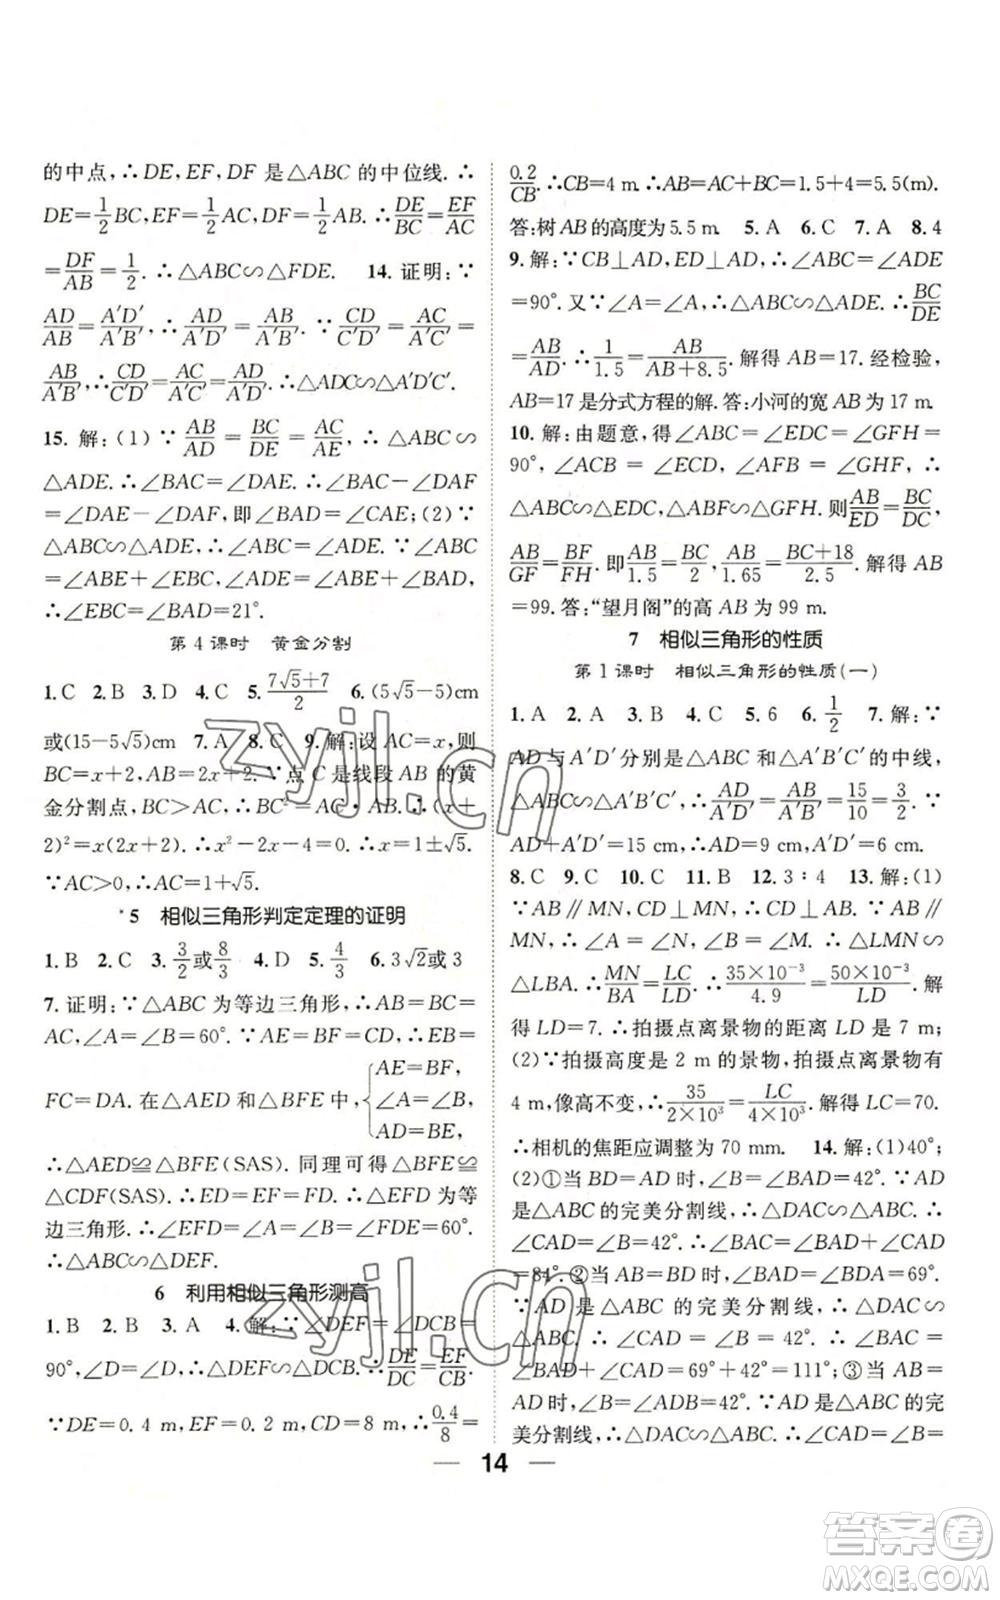 的中点,∴DE,EF,DF 是△ABC 的中位线.∴
DE=1/2BC,EF=1/2AC,DF=1/2AB.∴DE/BC=EF/AC
=DF/AB=1/2.∴△ABC∽△FDE. 14.证明:∵
AD/AB=A′D′/A′B′,∴AD/A′D′=AB/A′B′.∵CD/C′D′=AC/A′C′=
AB/A′B′,∴CD/C′D′=AC/A′C′=AD/A′D′.∴△ADC∽△A′D′C′.
15.解:(1)∵AB/AD=BC/DE=AC/AE,∴△ABC∽
△ADE.∴∠BAC=∠DAE.∴∠BAC-∠DAF
=∠DAE-∠DAF,即∠BAD=∠CAE;(2)∵
△ABC∽△ADE,∴∠ABC=∠ADE.∵∠ABC
=∠ABE+∠EBC,∠ADE=∠ABE+∠BAD,
∴∠EBC=∠BAD=21°.
第 4 课时 黄金分割
1.C 2.B 3.D 4.C 5.(7√5+7)/2 6.(5√5-5)cm
或(15-5√5)cm 7.A 8.C 9.解:设 AC=x,则
BC=x+2,AB=2x+2.∵点 C 是线段 AB 的黄
金分割点,BC>AC,∴BC²=AC·AB.∴(x+
2)²=x(2x+2).∴x²-2x-4=0.∴x=1±√5.
∵AC>0,∴AC=1+√5.
*5 相似三角形判定定理的证明
1.B 2.C 3.3/2或8/3 4.D 5.4/3 6.3√2或 3
7.证明:∵△ABC 为等边三角形,∴AB=BC=
AC,∠A=∠B=60°.∵AE=BF=CD,∴EB=
FC=DA.在△AED 和△BFE 中,{AE=BF,
∠A=∠B,
AD=BE,
∴△AED≌△BFE(SAS).同理可得△BFE≌
△CDF(SAS).∴ED=EF=FD.∴△EFD 为等
边三角形.∴∠EFD=∠A=∠B=∠FDE=60°.
∴△ABC∽△DEF.
6 利用相似三角形测高
1.B 2.B 3.A 4.解:∵∠DEF=∠DCB=
90°,∠D=∠D,∴△DEF∽△DCB.∴DE/DC=EF/CB.
∵DE=0.4 m,EF=0.2 m,CD=8 m,∴0.4/8=
0.2/CB.∴CB=4 m.∴AB=AC+BC=1.5+4=5.5(m).
答:树 AB 的高度为 5.5 m. 5.A 6.C 7.A 8.4
9.解:∵CB⊥AD,ED⊥AD,∴∠ABC=∠ADE
=90°.又∵∠A=∠A,∴△ABC∽△ADE.∴BC/DE
=AB/AD.∴1/1.5=AB/(AB+8.5).解得 AB=17.经检验,
AB=17 是分式方程的解.答:小河的宽 AB 为 17 m.
10.解:由题意,得∠ABC=∠EDC=∠GFH=
90°,∠ACB=∠ECD,∠AFB=∠GHF,∴
△ABC∽△EDC,△ABF∽△GFH.则AB/ED=BC/DC,
AB/GF=BF/FH.即AB/1.5=BC/2,AB/1.65=(BC+18)/2.5.解得 AB
=99.答:“望月阁”的高 AB 为 99 m.
7 相似三角形的性质
第 1 课时 相似三角形的性质(一)
1.A 2.A 3.B 4.C 5.6 6.1/2 7.解:∵
AD 与 A′D′分别是△ABC 和△A′B′C′的中线,
△ABC∽△A′B′C′,∴AD/A′D′=AB/A′B′=15/10=3/2.∵
AD+A′D′=15 cm,∴AD=9 cm,A′D′=6 cm.
8.C 9.C 10.C 11.B 12.3∶4 13.解:(1)
∵AB∥MN,CD⊥MN,∴LD⊥AB.∵AB∥
MN,∴∠A=∠N,∠B=∠M.∴△LMN∽
△LBA.∴MN/BA=LC/LD.∴35×10⁻³/4.9=50×10⁻³/LD.解
得 LD=7.∴拍摄点离景物的距离 LD 是 7 m;
(2)∵拍摄高度是 2 m 的景物,拍摄点离景物有
4 m,像高不变,∴35/2×10³=LC/4×10³.解得 LC=70.
∴相机的焦距应调整为 70 mm. 14.解:(1)40°;
(2)①当 BD=AD 时,∠BAD=∠B=42°.∵AD
是△ABC 的完美分割线,∴△DAC∽△ABC.∴
∠CAD=∠B=42°.∴∠BAC=∠BAD+∠CAD
=84°.②当 AB=BD 时,∠BAD=∠BDA=69°.
∵AD 是△ABC 的完美分割线,∴△DAC∽
△ABC.∴∠CAD=∠B=42°.∴∠BAC=
∠BAD+∠CAD=69°+42°=111°;③当 AB=
AD 时,∠B=∠ADB=42°.∵AD 是△ABC 的完
美分割线,∴△DAC∽△ABC.∴∠CAD=∠B=
14
zyjl.cn
zyjl.cn
答案卷
MXQE.COM